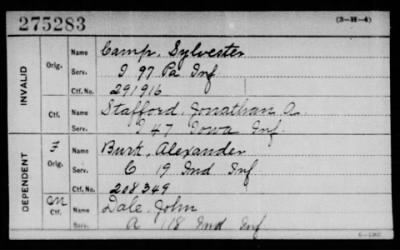 275283 (3-H-4)
INVALID
Orig. Name Camp, Sylvester
Serv. I 97 Pa Inf
Ctf. No. 291916
Ctf. Name Stafford, Jonathan A
Serv. I 47 Iowa Inf.
DEPENDENT
Orig. Name Burt, Alexander
Serv. C 19 Ind Inf
Ctf. No. 208349
Ctf. Name Dale, John
Serv. A 118 Ind Inf